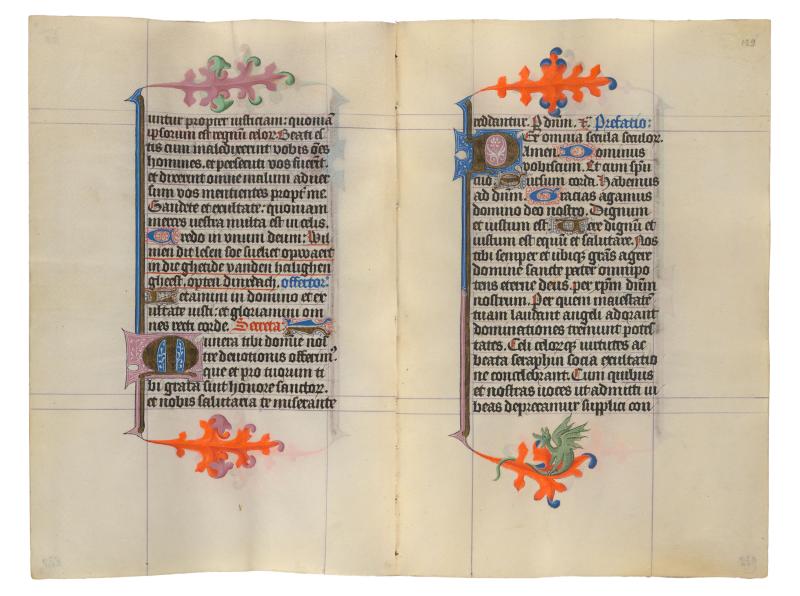 untur propter iusticiam: quoniā
ipsorum est regnū celor. Beati es
tis cum maledixerint vobis
homines. et persecuti vos fuerīt.
et dixerint omne malum adver
sum vos mentientes propt me.
Gaudete et exultate: quoniam
merces vestra multa est in celis.
Credo in unum deum: Wil
men dit lesen soe suelict opwaert
in die gheide vanden heilighen
gheest. opten dinxdach: offertor
Letamini in domino et ex
ultate iusti: et gloriamini om
nes recti corde. Secreta:
Munera tibi domine nos
tre devotionis offerim
que et pro tuorum ti
bi grata sint honore sanctor.
et nobis salutaria te miserante
129
reddantur. P dnm. Prefatio:
Per omnia secula seculor.
Amen. Dominus
vobiscum. Et cum spū
tuo. Sursum corda. Habemus
ad dnm. Gracias agamus
domino deo nostro. Dignum
et iustum est. Vere dignū et
iustum est equū et salutare. Nos
tibi semper et ubiqz grās agere
domine sancte pater omnipo
tens eterne deus. per xpm dnm
nostrum. Per quem maiestatē
tuam laudent angeli adorant
dominationes tremunt potes
tates. Celi celorqz virtutes ac
beata seraphin socia exultatio
ne concelebrant. Cum quibus
et nostras voces ut admitti iu
beas deprecamur supplici con